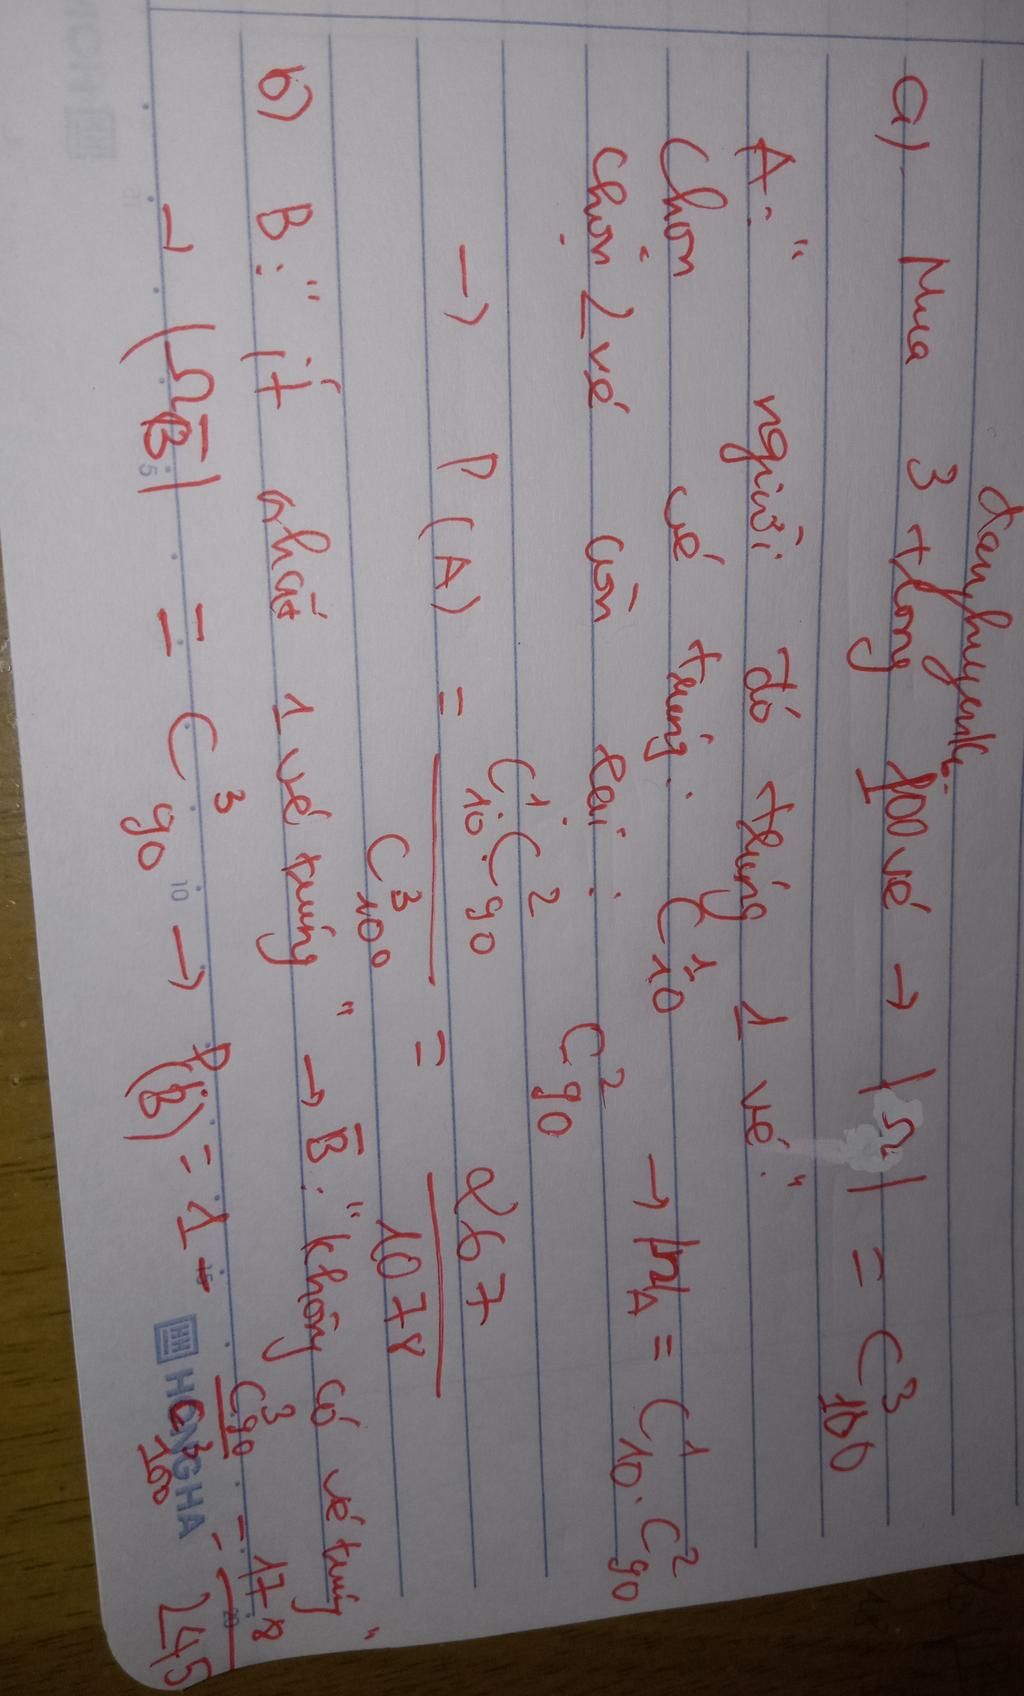 danhuyenk
a) Mua 3 trong 100 vé → |Ω| = C³₁₀₀
A: " người đó trúng 1 vé."
Chọn vé trúng: C¹₁₀ → |Ω|_A = C¹₁₀ . C²₉₀
chọn 2 vé còn lại : C²₉₀
→ P(A) = C¹₁₀ . C²₉₀ / C³₁₀₀ = 267 / 1078
b) B: " ít nhất 1 vé trúng " → B̅: " không có vé trúng "
→ |Ω_B̅| = C³₉₀ → P(B) = 1 - C³₉₀ / C³₁₀₀ = 178 / 245
HONG HA